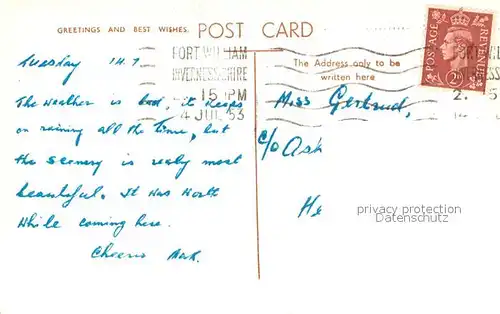 GREETINGS AND BEST WISHES. POST CARD
Tuesday 14.7
FORT WILLIAM
INVERNESS-SHIRE
15 PM
4 JUL 53
The Address only to be
written here
POSTAGE REVENUE
2D
The weather is bad, it keeps
on raining all the time, but
the scenery is really most
beautiful. It was worth
while coming here.
Cheerio
Miss Gertrud,
c/o Ask
He
privacy protection
Datenschutz